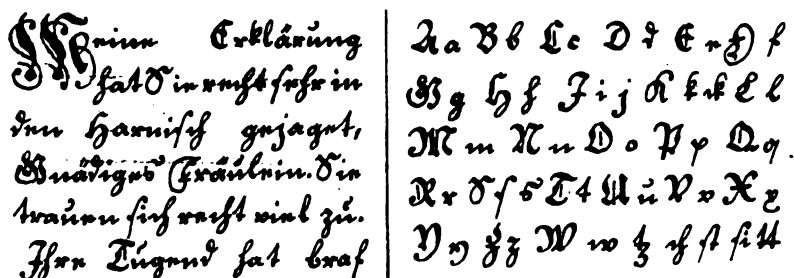 Meine Erklärung
hat Sie recht sehr in
den Harnisch gejaget,
Gnädiges Fräulein. Sie
trauen sich recht viel zu.
Ihre Tugend hat braf
A a B b C c D d E e F f
G g H h I i j K k ck L l
M m N n O o P p Q q.
R r S ſ s T t U u V v X x
Y y Z z W w tz ch ſt ſi tt